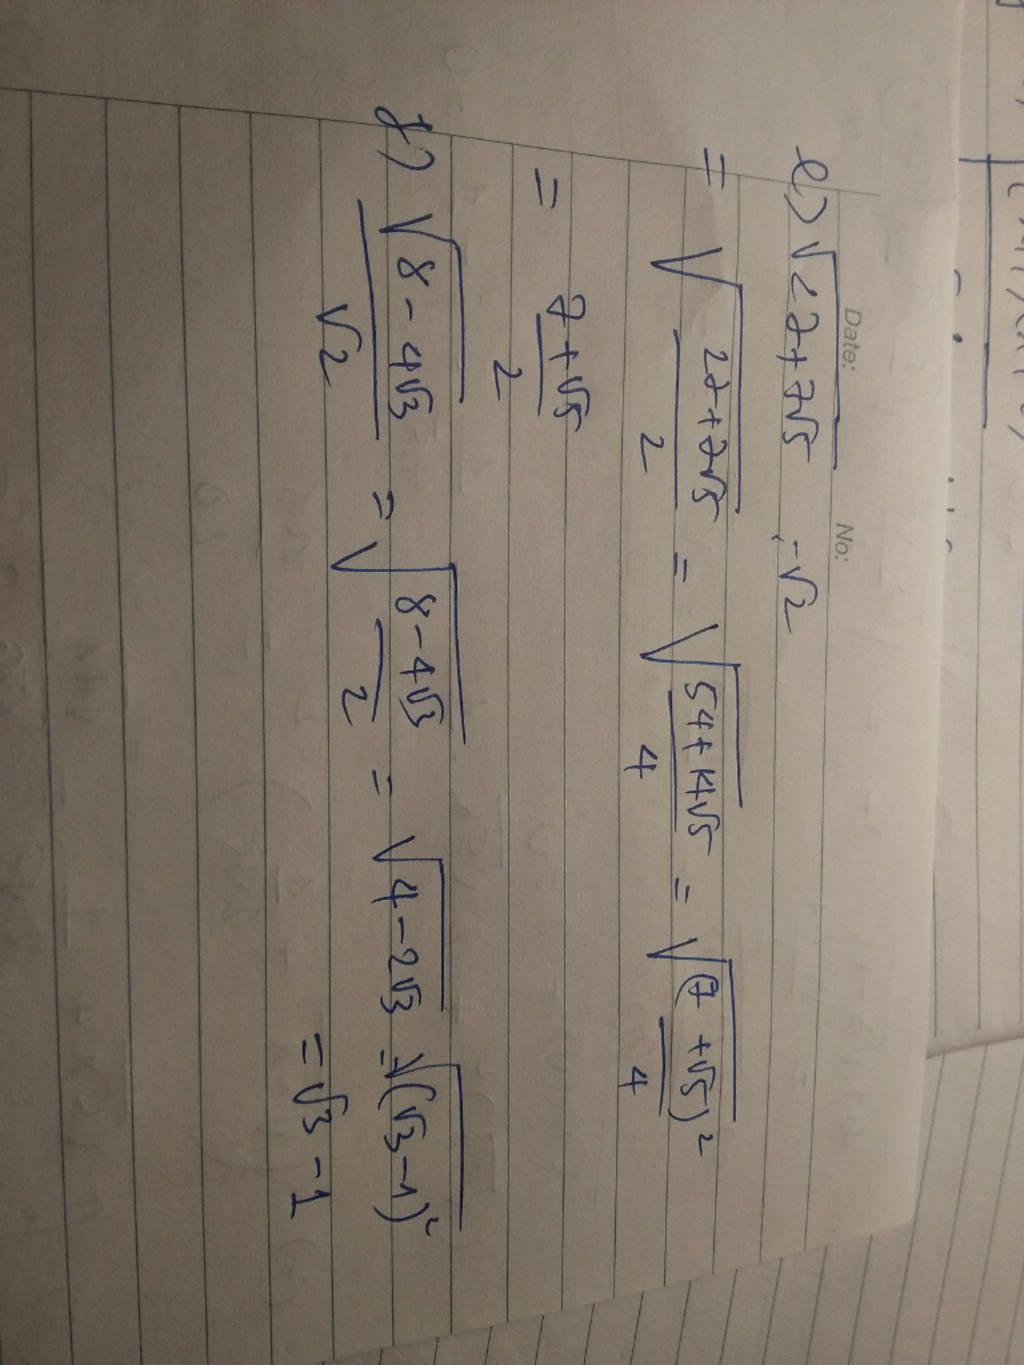 Date: No:
e) √(27+7√5) : √2
= √((27+7√5)/2) = √((54+14√5)/4) = √((7+√5)²/4)
= (7+√5)/2
f) √(8-4√3)/√2 = √((8-4√3)/2) = √(4-2√3) = √((√3-1)²)
= √3 - 1